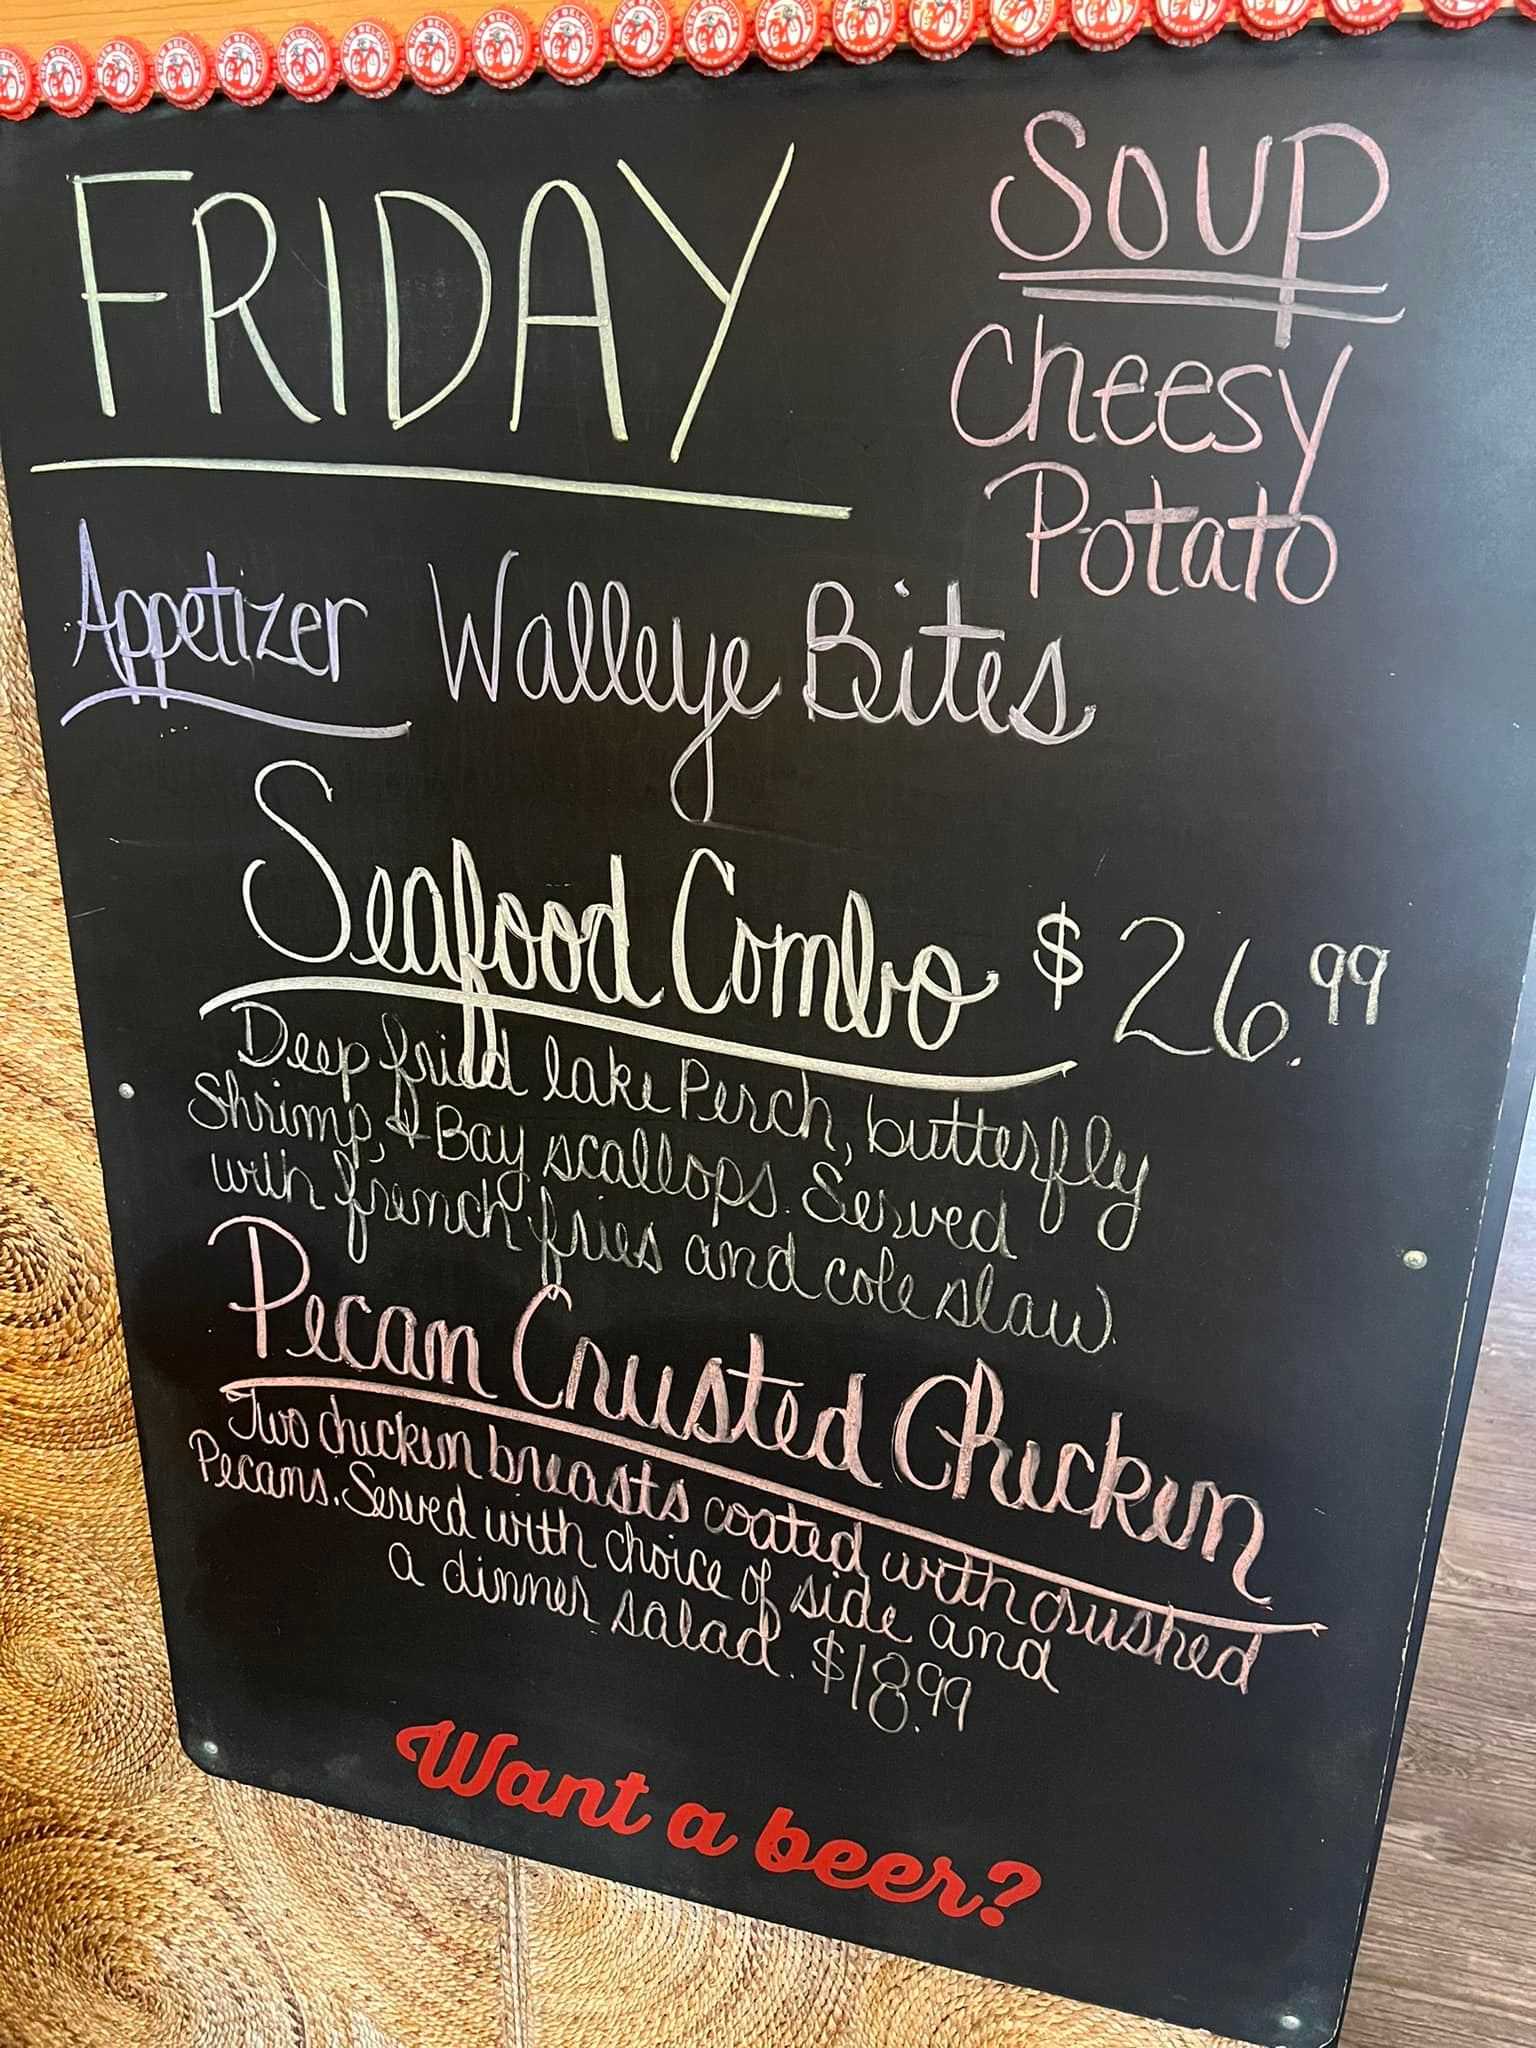 NEW BELGIUM
FRIDAY
Soup
Cheesy
Potato
Appetizer Walleye Bites
Seafood Combo $26.99
Deep fried lake Perch, butterfly
Shrimp, & Bay scallops. Served
with french fries and cole slaw.
Pecan Crusted Chicken
Two chicken breasts coated with crushed
Pecans. Served with choice of side and
a dinner salad. $18.99
Want a beer?